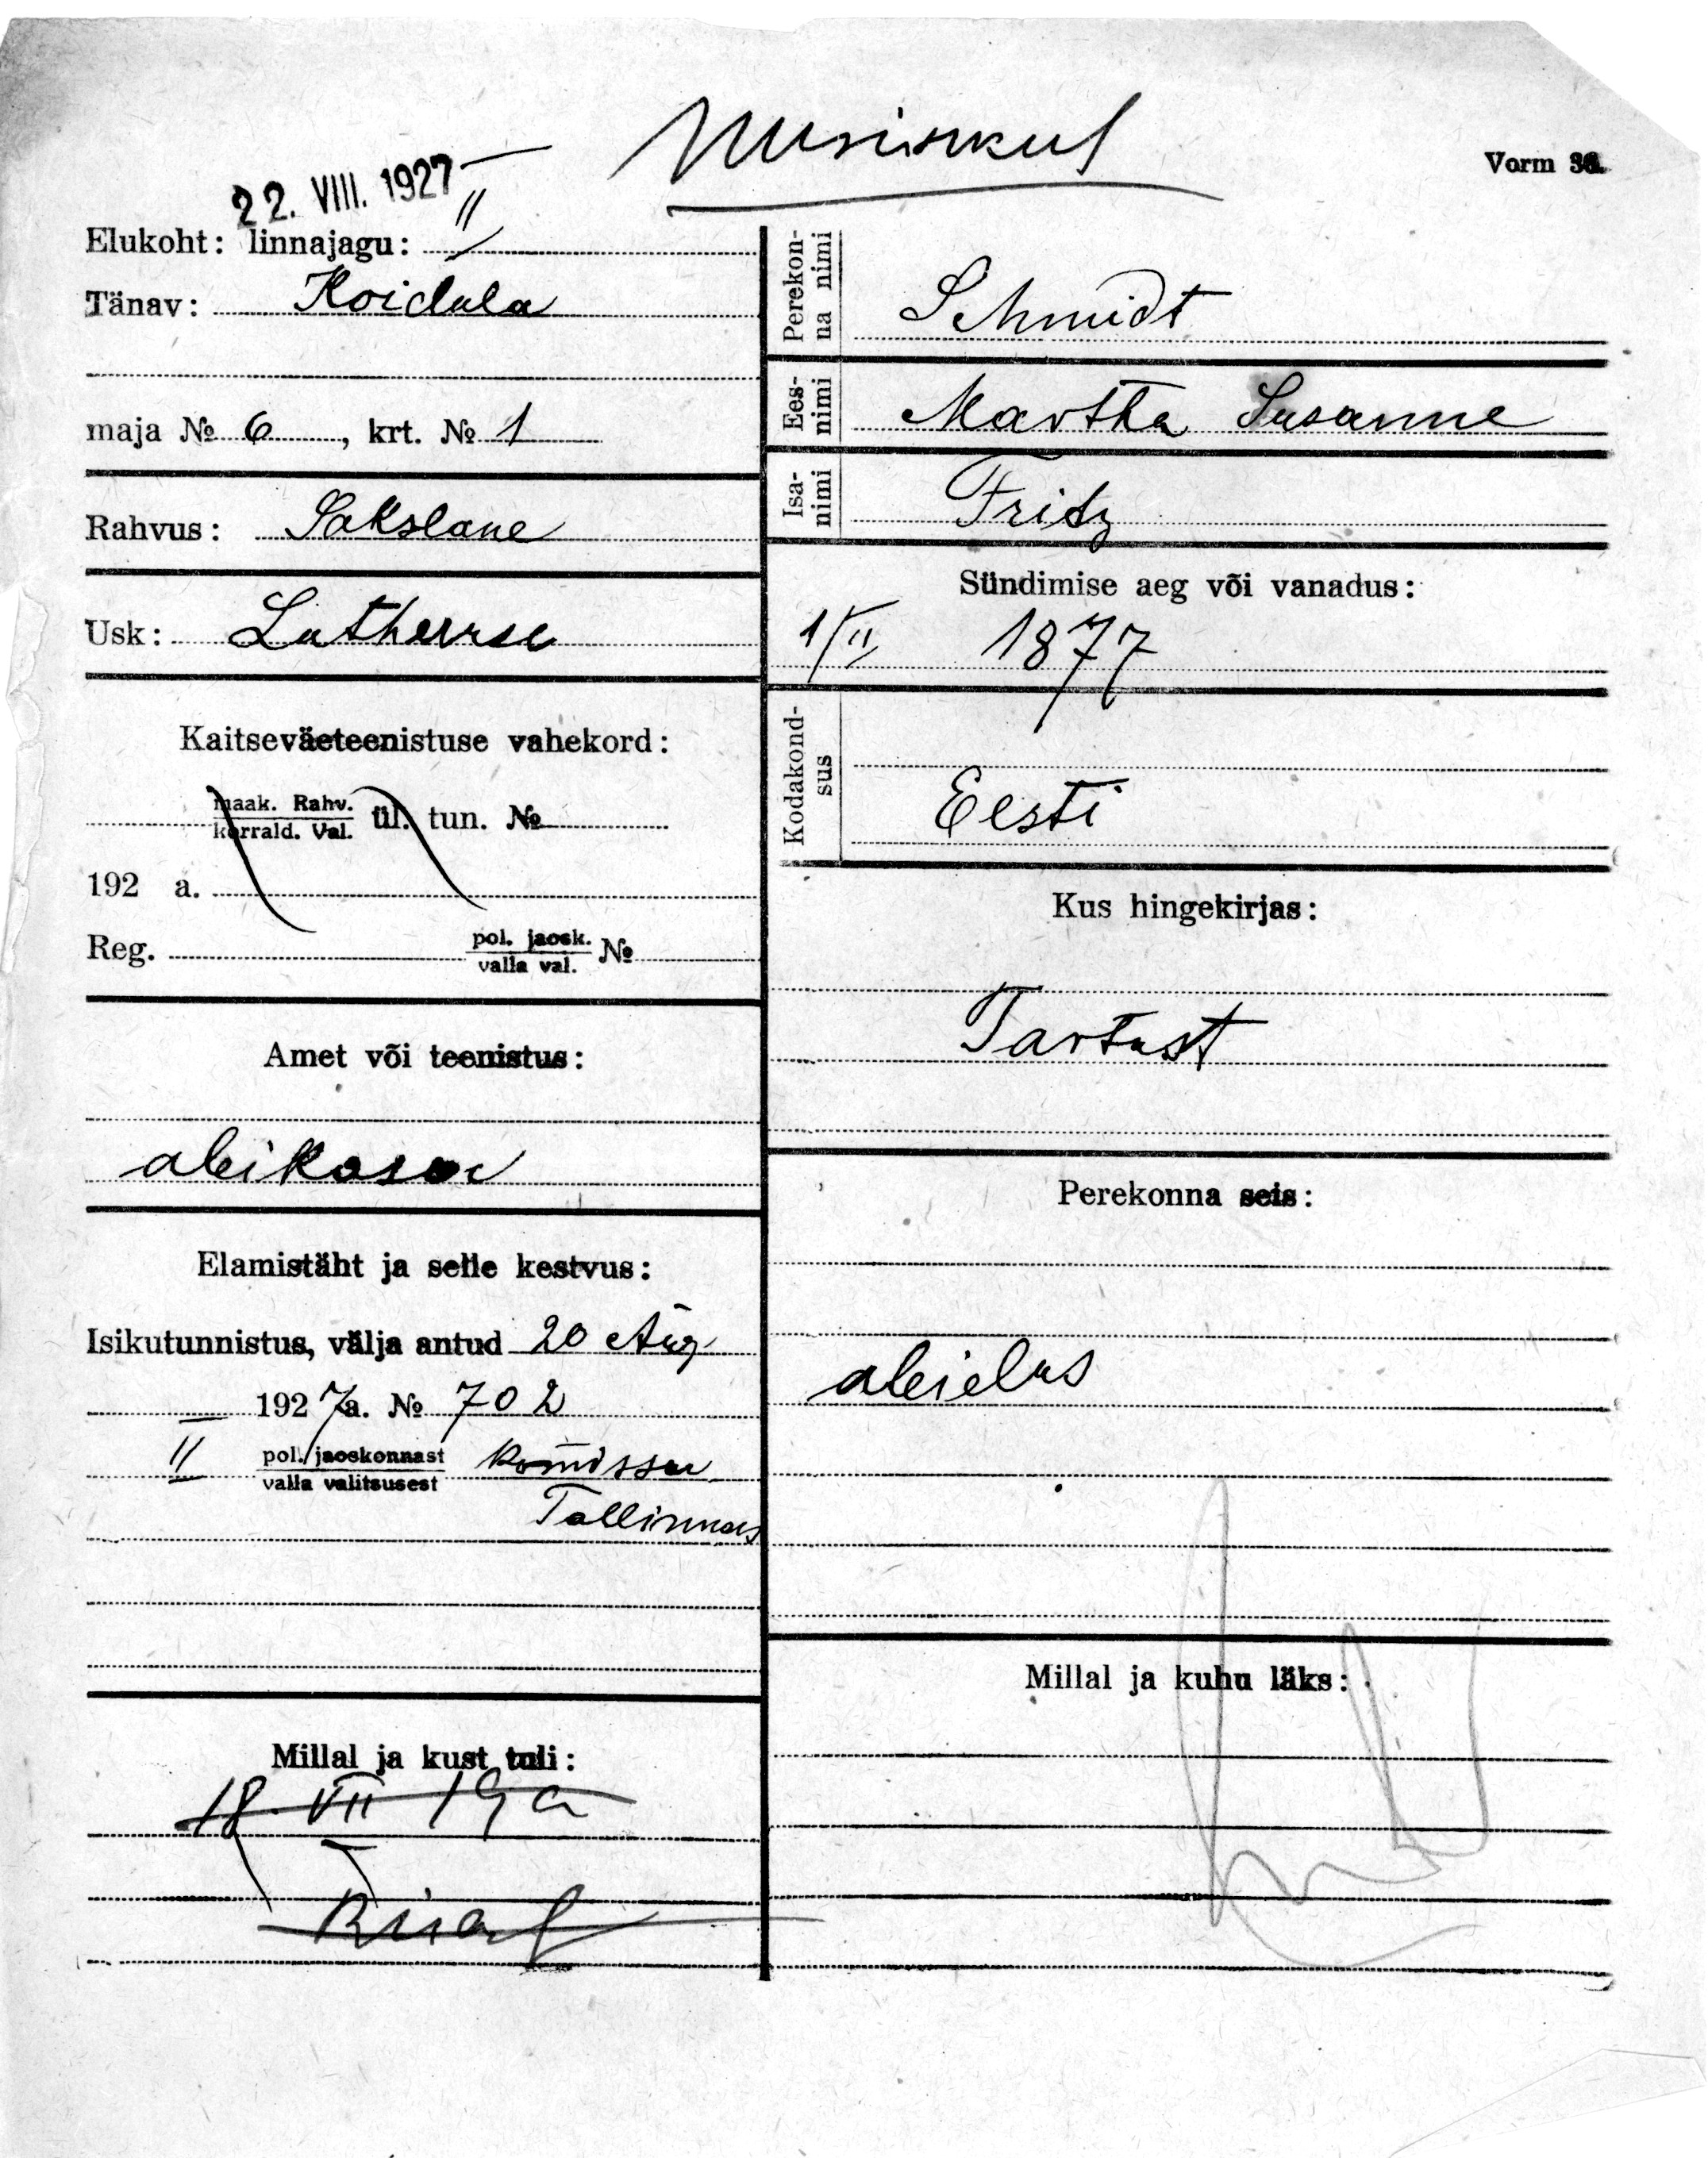 22. VIII. 1927
Vorm 36.
Elukoht: linnajagu: II
Tänav: Koidula
maja № 6, krt. № 1
Rahvus: Sakslane
Usk: Lutheruse
Kaitseväeteenistuse vahekord:
maak. Rahv.
korrald. Val. ül. tun. №
192 a.
Reg. pol. jaosk.
valla val. №
Amet või teenistus:
abikasa
Elamistäht ja selle kestvus:
Isikutunnistus, välja antud 20 Aug
1927 a. № 702
II pol. jaoskonnast
valla valitsusest
Tallinnas
Millal ja kust tuli:
18. VII 19 a
Perekon-
na nimi
Schmidt
Ees-
nimi
Martha Susanne
Isa-
nimi
Fritz
Sündimise aeg või vanadus:
1/II 1877
Kodakond-
sus
Eesti
Kus hingekirjas:
Tartust
Perekonna seis:
abielus
Millal ja kuhu läks: